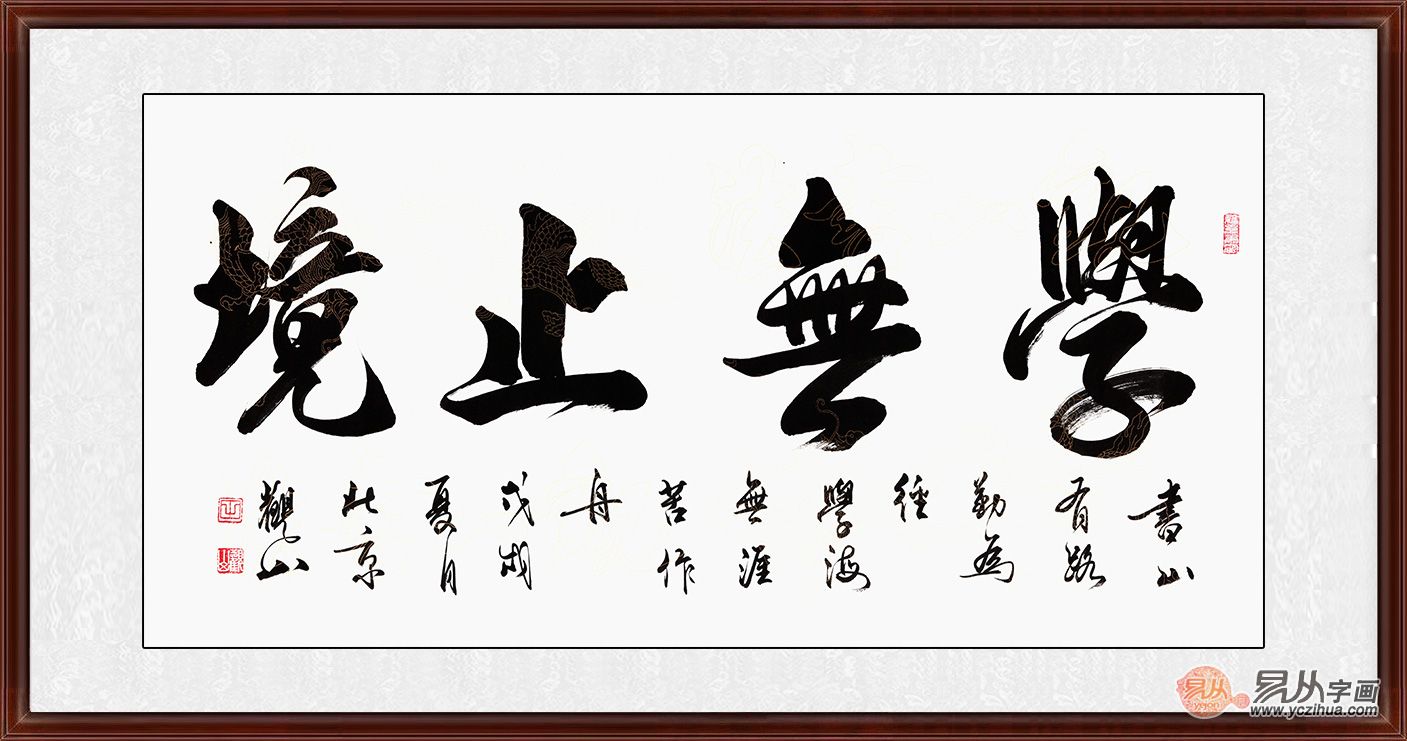 學無止境
書山
有路
勤為
徑
學海
無涯
苦作
舟
戊戌
夏月
北京
觀山
易从
yejon
易从字画
www.yczihua.com